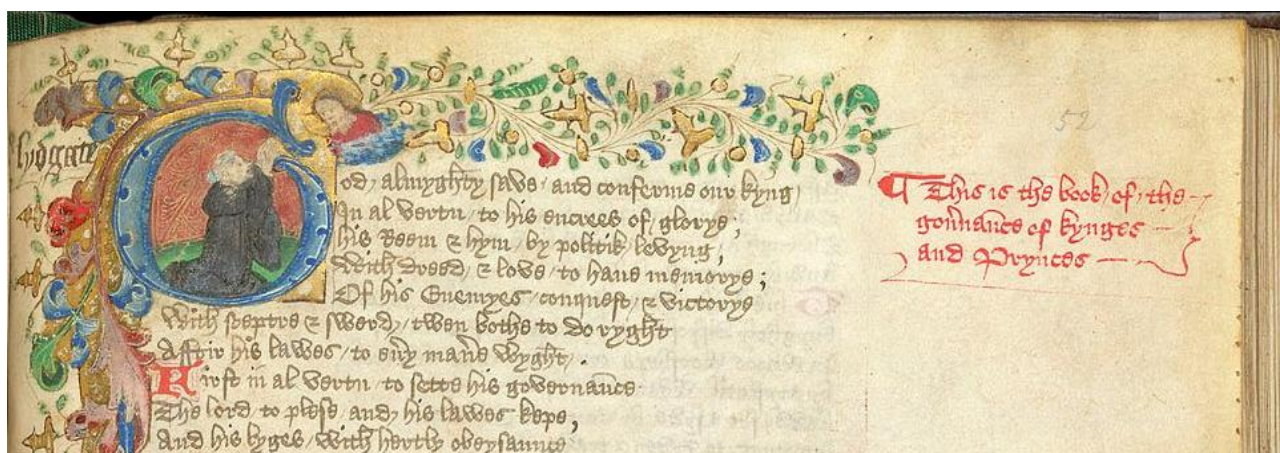 lydgate
52
God almyghty save / and conferme our kyng
In al vertu / to his encrees of glorye ,
his Reem & hym / by politik levyng ,
With dreed / & love / to have memorye ;
Of his Enemyes / conquest / & victorye
With sceptre & swerd / twen bothe to do ryght
Afftir his lawes / to euy mane wyght .
First in al vertu to sette his governāce
The lord to plese / and his lawes kepe ,
And his lyges / with hertly obeysaunce
This is the book of the
gov̄nance of kynges
and Prynces